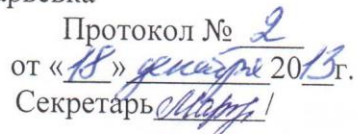 Протокол № 2
от «18» декабря 2013г.
Секретарь